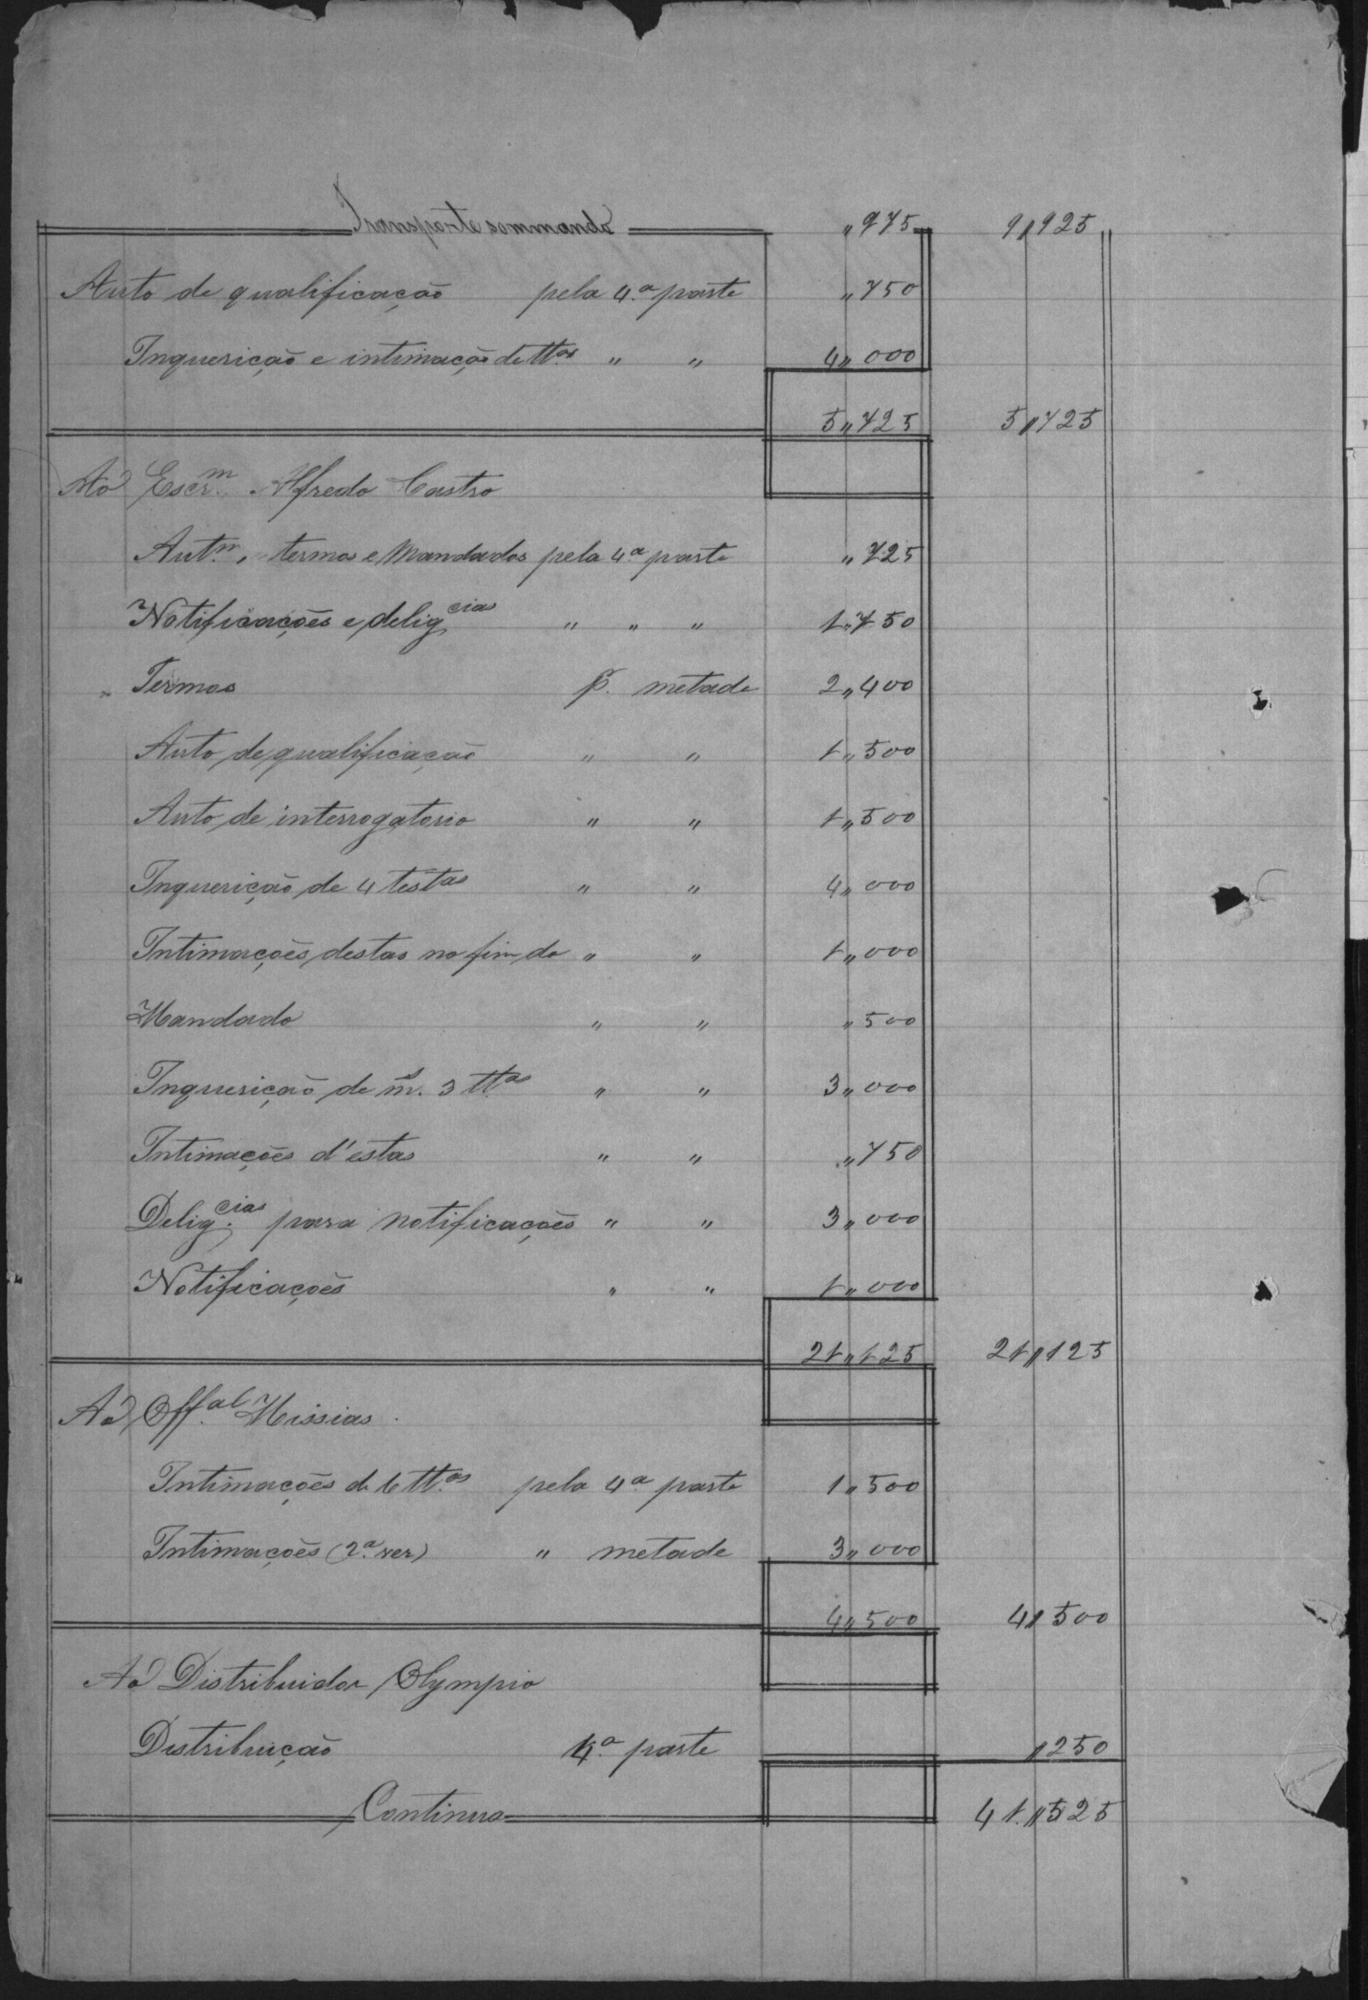 Transporte sommando „975 9„925
Auto de qualificação pela 4.ª parte „750
Inquerição e intimação de ttas „ „ 4„000
5„725 5„725
Ao Escr.m Alfredo Castro
Aut.m, termos e Mandados pela 4.ª parte „725
Notificações e delig.cias „ „ „ 1„750
Termos p. metade 2„400
Auto de qualificação „ „ 1„500
Auto de interrogatorio „ „ 1„500
Inquerição de 4 testas „ „ 4„000
Intimações destas no fim do „ „ 1„000
Mandado „ „ „500
Inquerição de m.s 3 ttas „ „ 3„000
Intimações d'estas „ „ „750
Delig.cias para notificações „ „ 3„000
Notificações „ „ 1„000
21„125 21„125
Ao Off.al Missias.
Intimações de 6 tt.as pela 4.ª parte 1„500
Intimações (2.ª vez) „ metade 3„000
4„500 4„500
Ao Distribuidor Olympio
Distribuição 4.ª parte „250
Continua 41„525